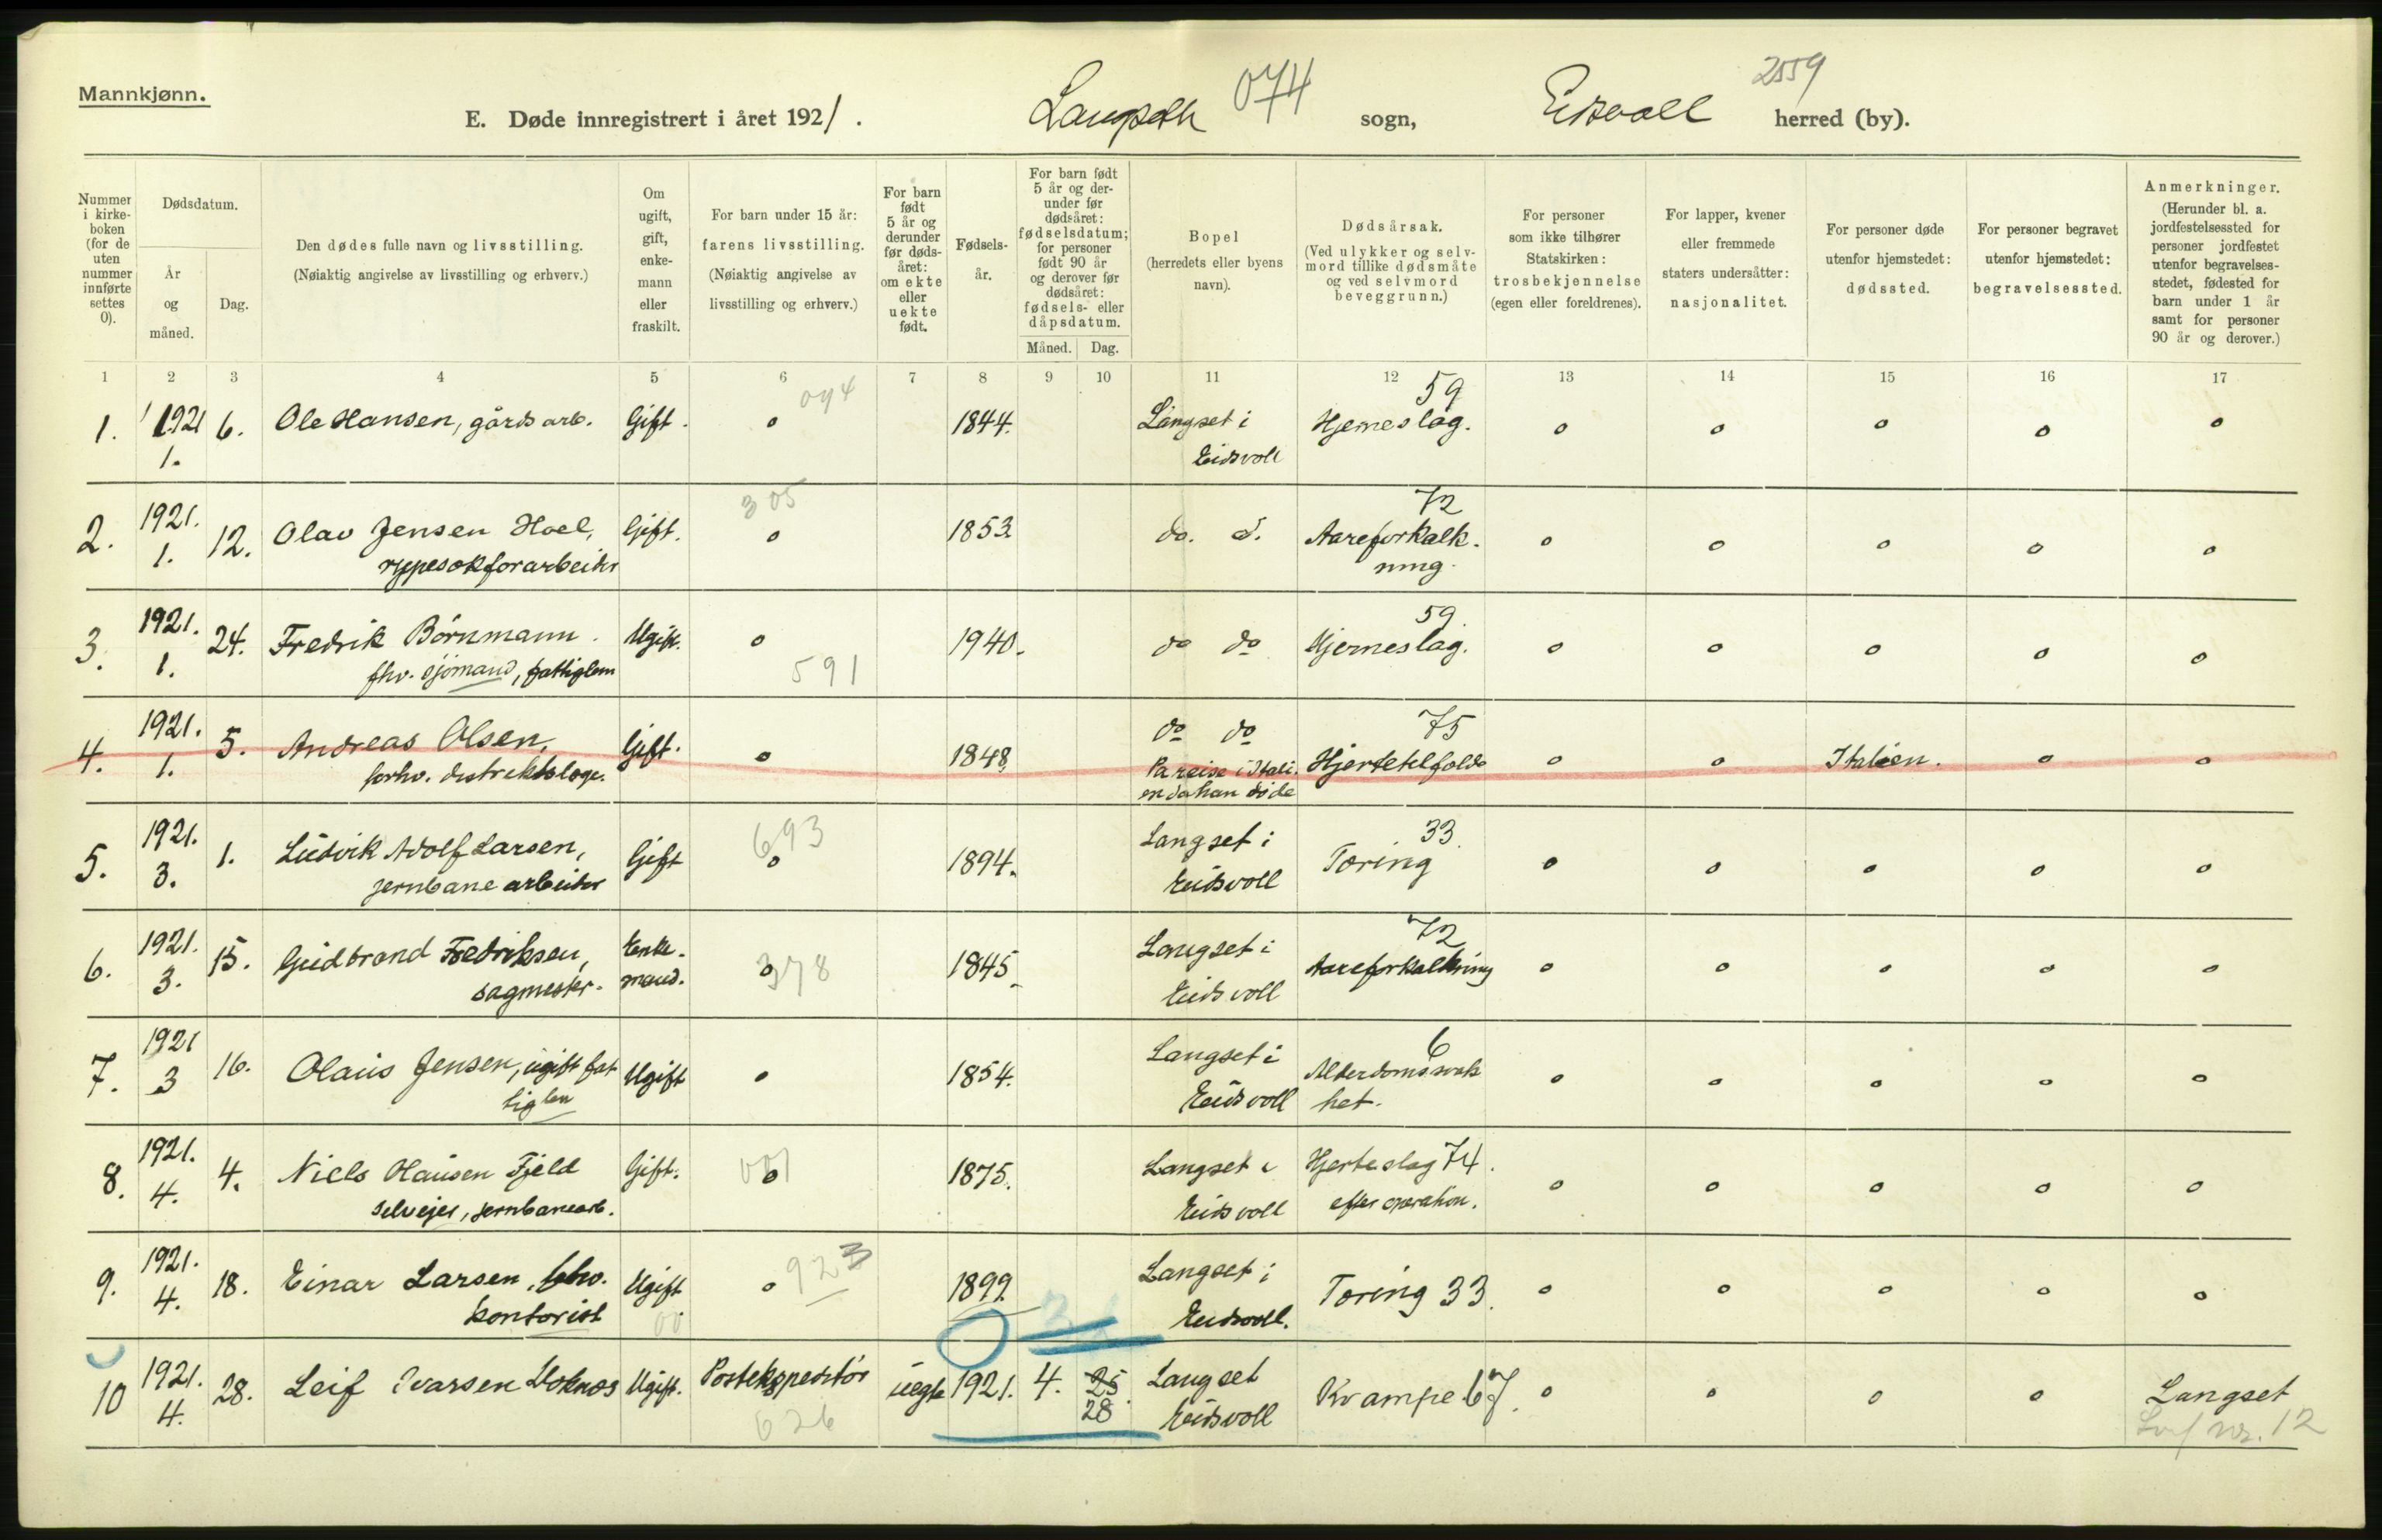 Mannkjønn.
E. Døde innregistrert i året 1921. Langseth 074 sogn, Eidsvoll 2559 herred (by).
Nummer i kirkeboken (for de uten nummer innførte settes 0).
Dødsdatum.
År og måned.
Dag.
Den dødes fulle navn og livsstilling.
(Nøiaktig angivelse av livsstilling og erhverv.)
Om ugift, gift, enkemann eller fraskilt.
For barn under 15 år: farens livsstilling.
(Nøiaktig angivelse av livsstilling og erhverv.)
For barn født 5 år og derunder før dødsåret: om ekte eller uekte født.
Fødselsår.
For barn født 5 år og derunder før dødsåret: fødselsdatum; for personer født 90 år og derover før dødsåret: fødsels- eller dåpsdatum.
Måned. Dag.
Bopel (herredets eller byens navn).
Dødsårsak.
(Ved ulykker og selvmord tillike dødsmåte og ved selvmord beveggrunn.)
For personer som ikke tilhører Statskirken: trosbekjennelse (egen eller foreldrenes).
For lapper, kvener eller fremmede staters undersåtter: nasjonalitet.
For personer døde utenfor hjemstedet: dødssted.
For personer begravet utenfor hjemstedet: begravelsessted.
Anmerkninger.
(Herunder bl. a. jordfestelsessted for personer jordfestet utenfor begravelsesstedet, fødested for barn under 1 år samt for personer 90 år og derover.)
1 2 3 4 5 6 7 8 9 10 11 12 13 14 15 16 17
1. 1921 1. 6. Ole Hansen, gårdsarb. Gift. 074 o 1844. Langset i Eidsvoll 59 Hjerneslag. o o o o o
2. 1921. 1. 12. Olav Jensen Hoel, Gift. 305 o 1853. do. d. 72 Aareforkalkning. o o o o o
3. 1921. 1. 24. Fredrik Börnmann. fhv. sjömand, fattiglem Ugift. o 591 1940. do do 59. Hjerneslag. o o o o o
4. 1921. 1. 5. Andreas Olsen, forhv. distriktslæge. Gift. o 1848. do do Pa reise i Italien da han döde 75 Hjertetilfælde o o Italien. o o
5. 1921. 3. 1. Ludvik Adolf Larsen, jernbanearbeider Gift 693 o 1894. Langset i Eidsvoll 33. Tæring o o o o o
6. 1921. 3. 15. Gudbrand Fredriksen, sagmester. Enkemand. 378 o 1845. Langset i Eidsvoll 72 Aareforkalkning o o o o o
7. 1921 3 16. Olaus Jensen, ugift fattiglem Ugift o 1854. Langset i Eidsvoll 6 Alderdomssvakhet. o o o o o
8. 1921. 4. 4. Niels Olausen Fjeld selveier, jernbanearb. Gift. 001 o 1875. Langset i Eidsvoll Hjerteslag 74. efter operation. o o o o o
9. 1921. 4. 18. Einar Larsen, fhv. kontorist Ugift 00 o 923 1899. Langset i Eidsvoll. Tæring 33. o o o o o
10 1921. 4. 28. Leif Ivarsen Ugift. Postekspeditör 626 uegte 1921. 4. 25. 28 Langset Eidsvoll Krampe 67. o o o o Langset
nr. 12